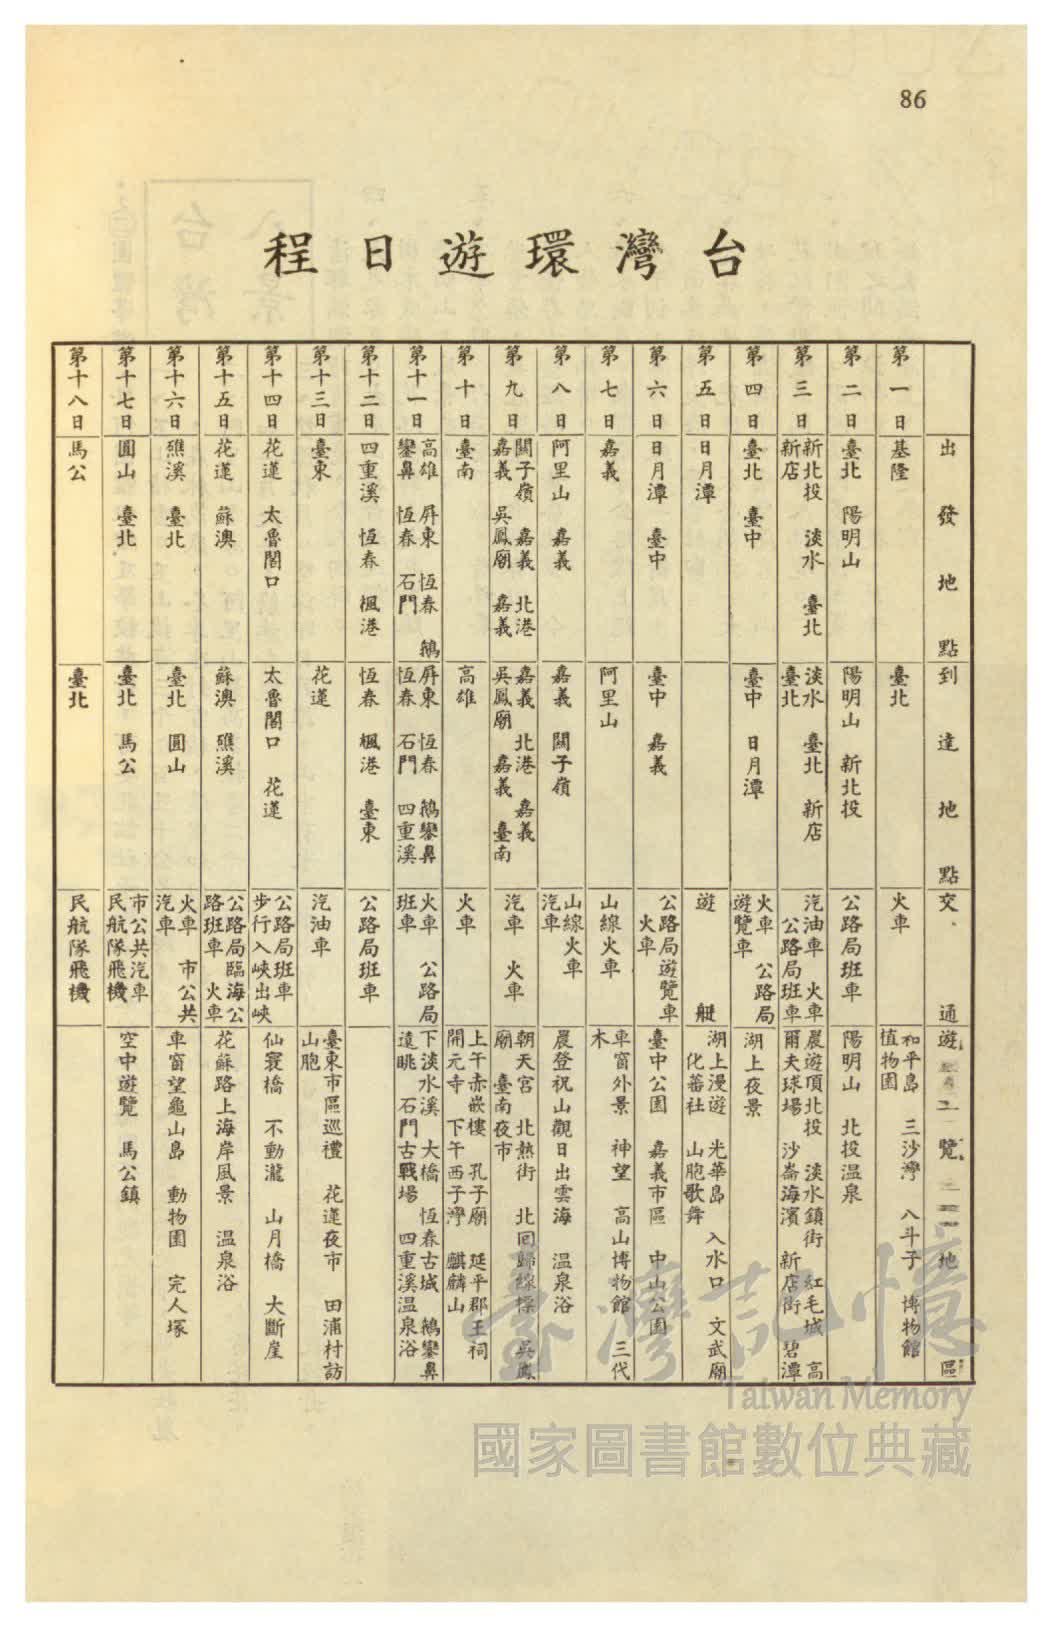 86
台灣環遊日程
出發地點 到達地點 交通 遊覽地區
第一日 基隆 臺北 火車 和平島 三沙灣 八斗子 博物館 植物園
第二日 臺北 陽明山 陽明山 新北投 公路局班車 陽明山 北投溫泉
第三日 新北投 淡水 臺北 新店 淡水 臺北 新店 臺北 汽油車 火車 公路局班車 晨遊頂北投 淡水鎮街 紅毛城 高爾夫球場 沙崙海濱 新店街 碧潭
第四日 臺北 臺中 臺中 日月潭 火車 公路局遊覽車 湖上夜景
第五日 日月潭 遊艇 湖上漫遊 光華島 入水口 文武廟 化蕃社 山胞歌舞
第六日 日月潭 臺中 臺中 嘉義 公路局遊覽車 火車 臺中公園 嘉義市區 中山公園
第七日 嘉義 阿里山 山線火車 車窗外景 神望 高山博物館 三代木
第八日 阿里山 嘉義 嘉義 關子嶺 山線火車 汽車 晨登祝山觀日出雲海 溫泉浴
第九日 關子嶺 嘉義 北港 嘉義 吳鳳廟 嘉義 嘉義 北港 嘉義 吳鳳廟 嘉義 臺南 汽車 火車 朝天宮 北熱街 北回歸線標 吳鳳廟 臺南夜市
第十日 臺南 高雄 火車 上午赤嵌樓 孔子廟 延平郡王祠 開元寺 下午西子灣 麒麟山
第十一日 高雄 屏東 恆春 鵝鑾鼻 恆春 石門 屏東 恆春 鵝鑾鼻 恆春 石門 四重溪 火車 公路局班車 下淡水溪 大橋 恆春古城 鵝鑾鼻遠眺 石門古戰場 四重溪溫泉浴
第十二日 四重溪 恆春 楓港 恆春 楓港 臺東 公路局班車
第十三日 臺東 花蓮 汽油車 臺東市區巡禮 花蓮夜市 田浦村訪山胞
第十四日 花蓮 太魯閣口 太魯閣口 花蓮 公路局班車 步行入峽出峽 仙寰橋 不動瀧 山月橋 大斷崖
第十五日 花蓮 蘇澳 蘇澳 礁溪 公路局臨海公路班車 火車 花蘇路上海岸風景 溫泉浴
第十六日 礁溪 臺北 臺北 圓山 火車 市公共汽車 車窗望龜山島 動物園 完人塚
第十七日 圓山 臺北 臺北 馬公 市公共汽車 民航隊飛機 空中遊覽 馬公鎮
第十八日 馬公 臺北 民航隊飛機
臺灣記憶
Taiwan Memory
國家圖書館數位典藏